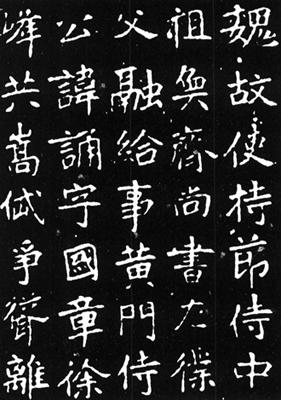 魏故使持節侍中
祖奐齊尚書左僕
父融給事黃門侍
公諱誦字國章徐
峰共嵩岱爭聳離